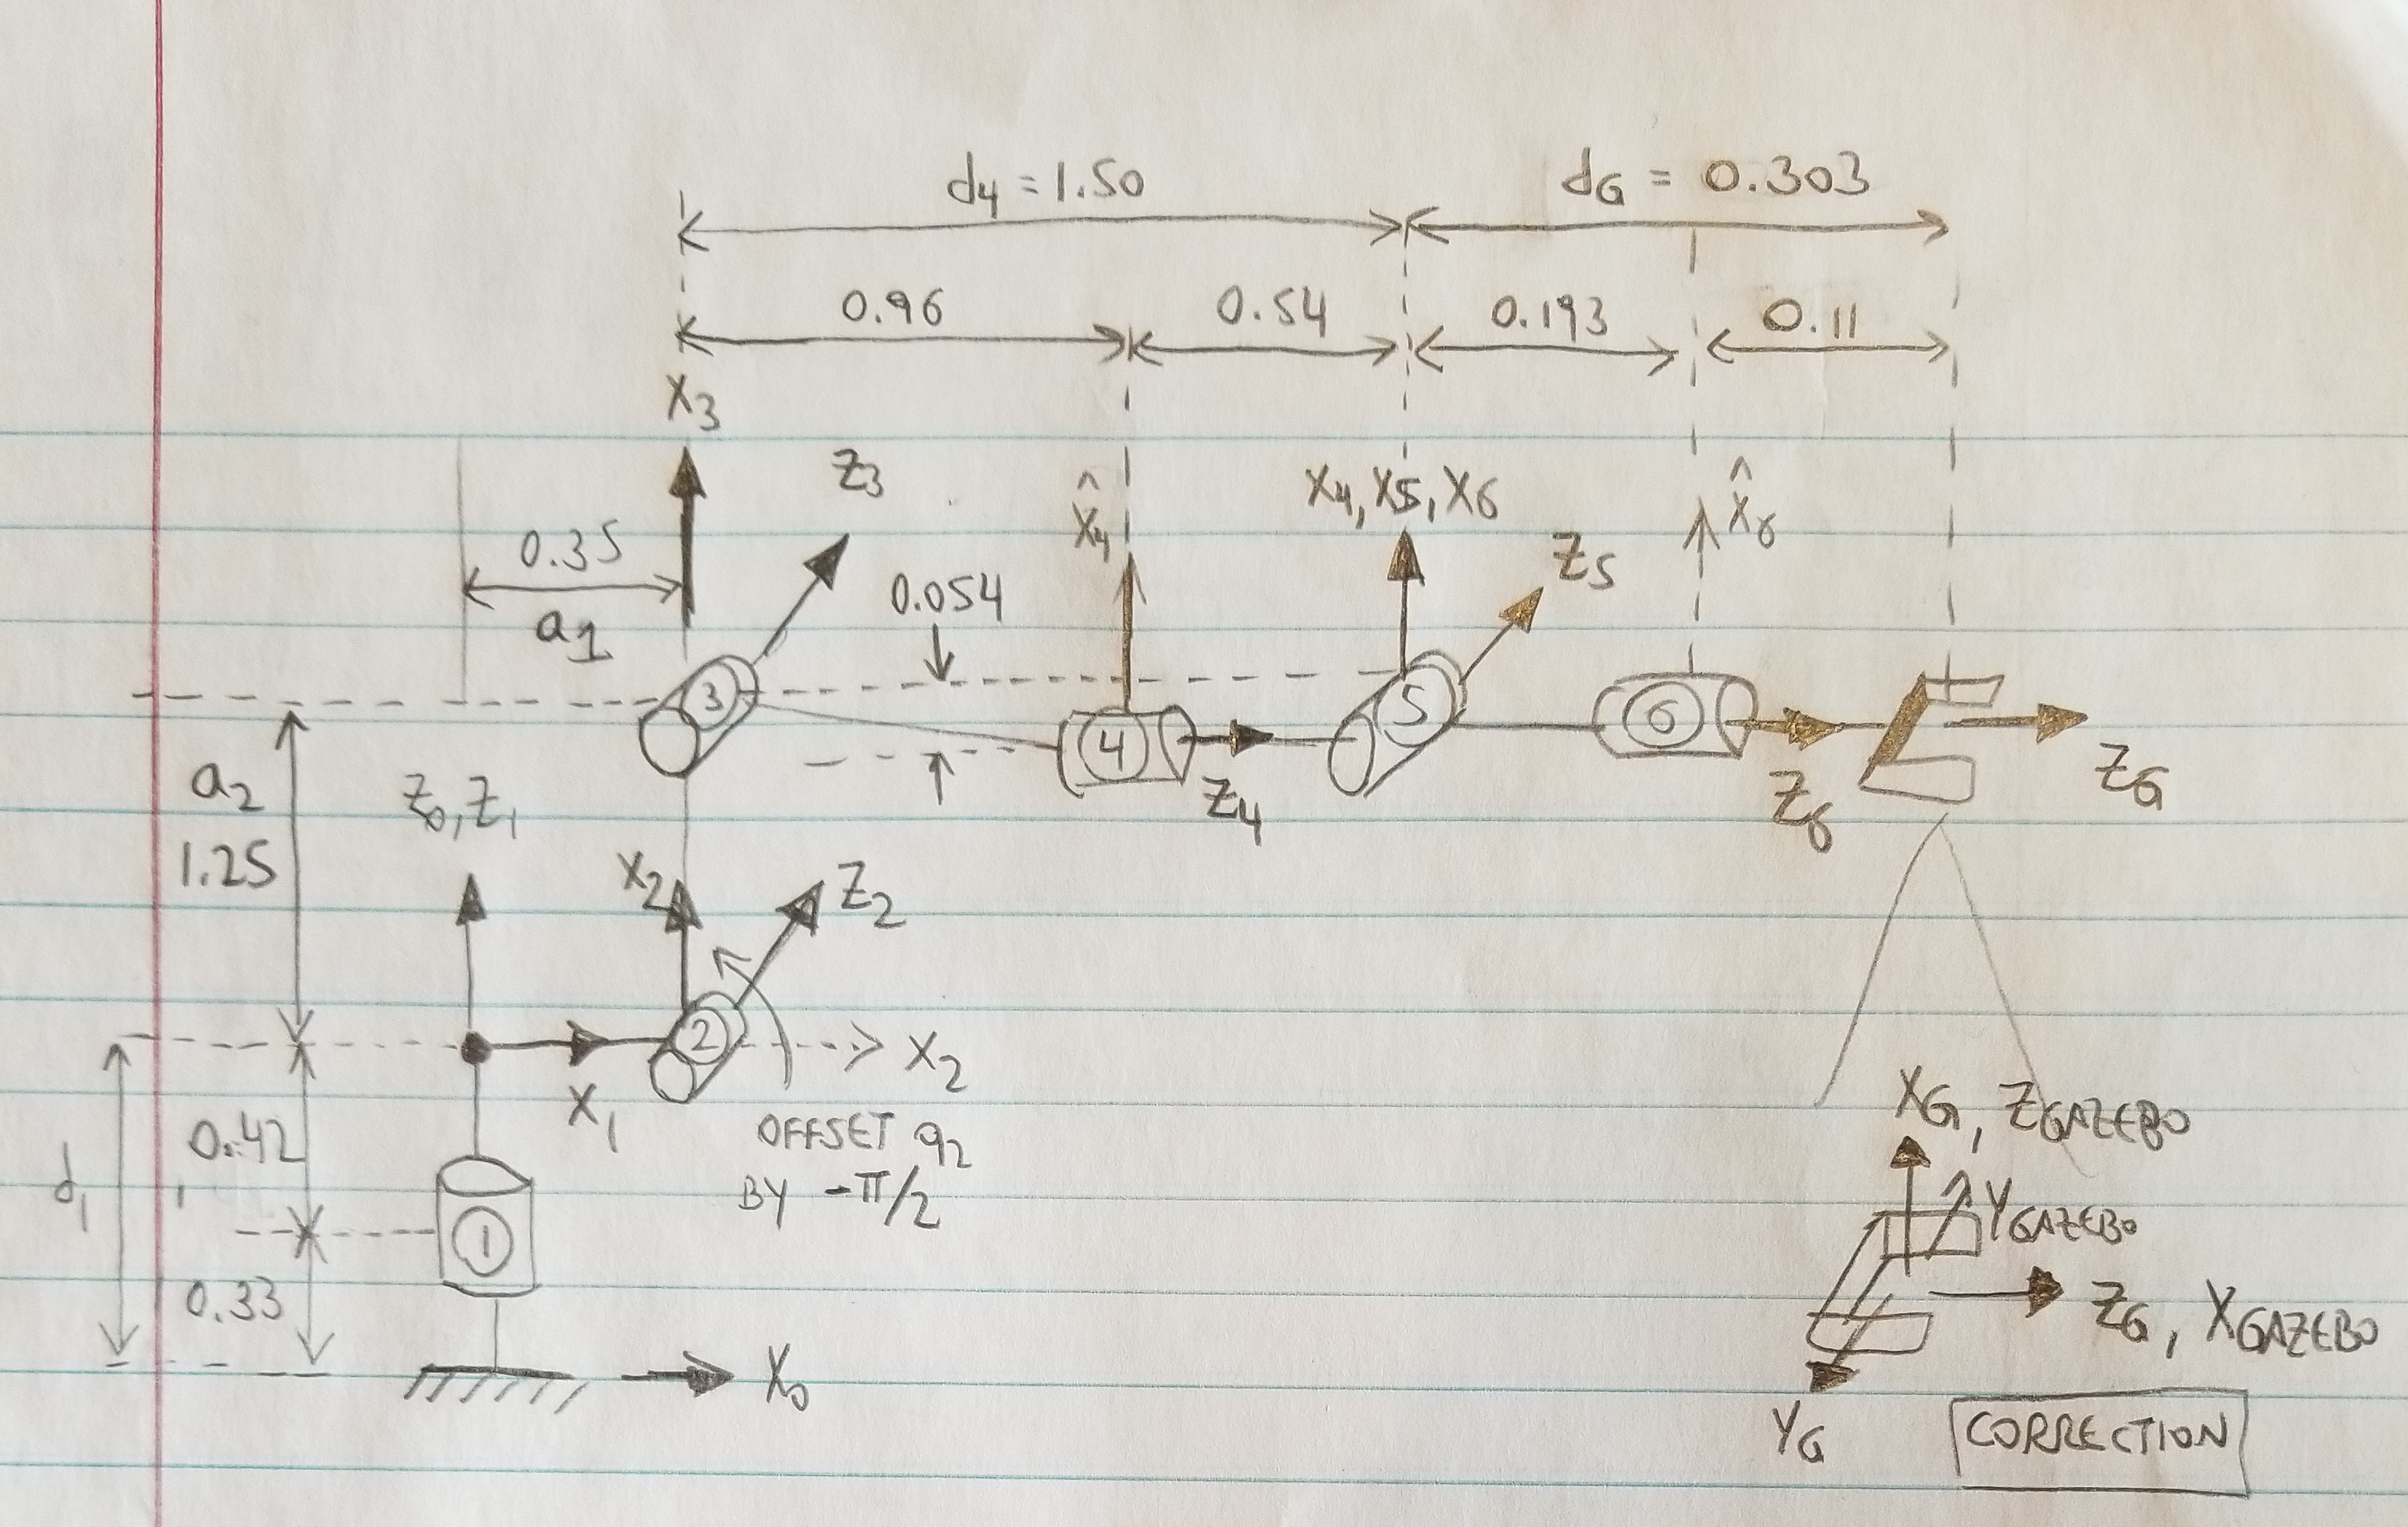 d4 = 1.50
dG = 0.303
0.96
0.54
0.193
0.11
X3
Z3
X̂4
X4, X5, X6
X̂6
0.35
a1
0.054
Z5
3
4
5
6
Z4
Z6
ZG
a2
1.25
Z0, Z1
X2
Z2
2
X2
X1
OFFSET q2
BY -π/2
d1
0.42
1
0.33
X0
XG, ZGAZEBO
YGAZEBO
ZG, XGAZEBO
YG
CORRECTION